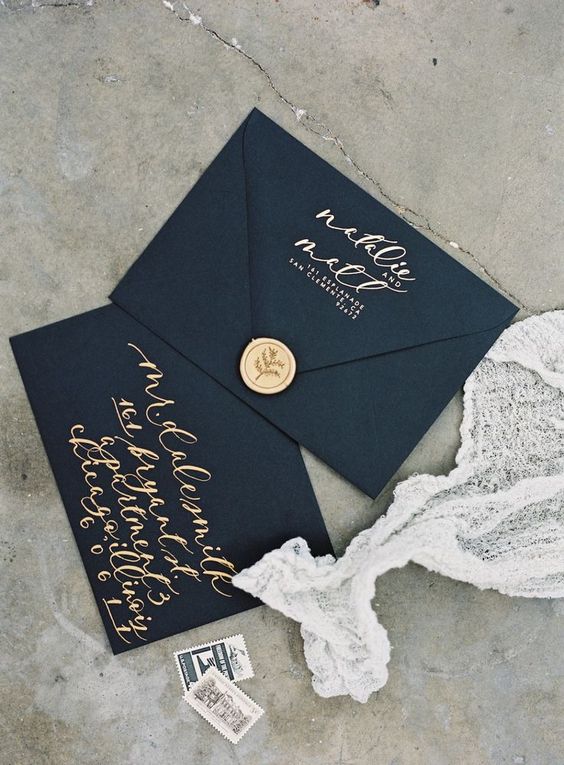 natalie
AND
matt
161 ESPLANADE
SAN CLEMENTE, CA
92672
mr. dale smith
161 bryant st.
apartment 3
chicago, illinois
60611